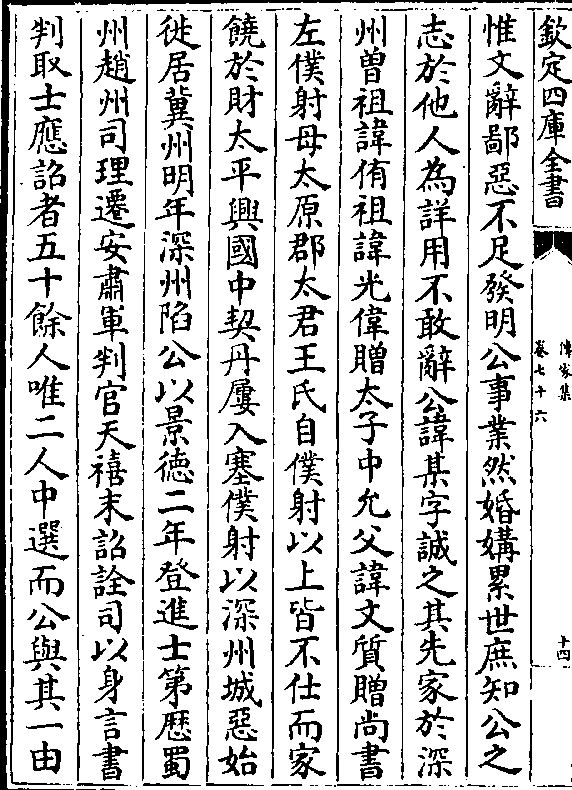 欽定四庫全書
傳家集
卷七十六
十四
惟文辭鄙惡不足發明公事業然婚媾累世庶知公之
志於他人為詳用不敢辭公諱某字誠之其先家於深
州曽祖諱侑祖諱光偉贈太子中允父諱文質贈尚書
左僕射母太原郡太君王氏自僕射以上皆不仕而家
饒於財太平興國中契丹屢入塞僕射以深州城惡始
徙居冀州明年深州陷公以景徳二年登進士第歴蜀
州趙州司理遷安肅軍判官天禧末詔詮司以身言書
判取士應詔者五十餘人唯二人中選而公與其一由